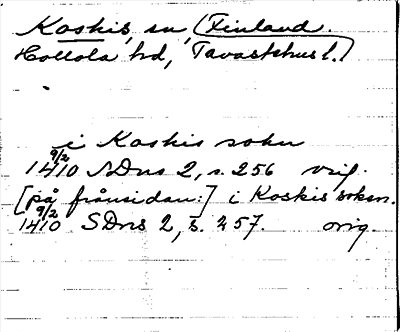 Koskis, sn, (Finland.
Hollola hd, Tavastehus l.)
i Koskis sokn
9/2
1410 SDns 2, s. 256 vrif.
[på frånsidan:] i Koskis soken.
9/2
1410 SDns 2, s. 257. orig.